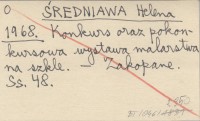 O
ŚREDNIAWA Helena
1968. Konkurs oraz pokon-
kursowa wystawa malarstwa
na szkle. – Zakopane.
Ss. 48.